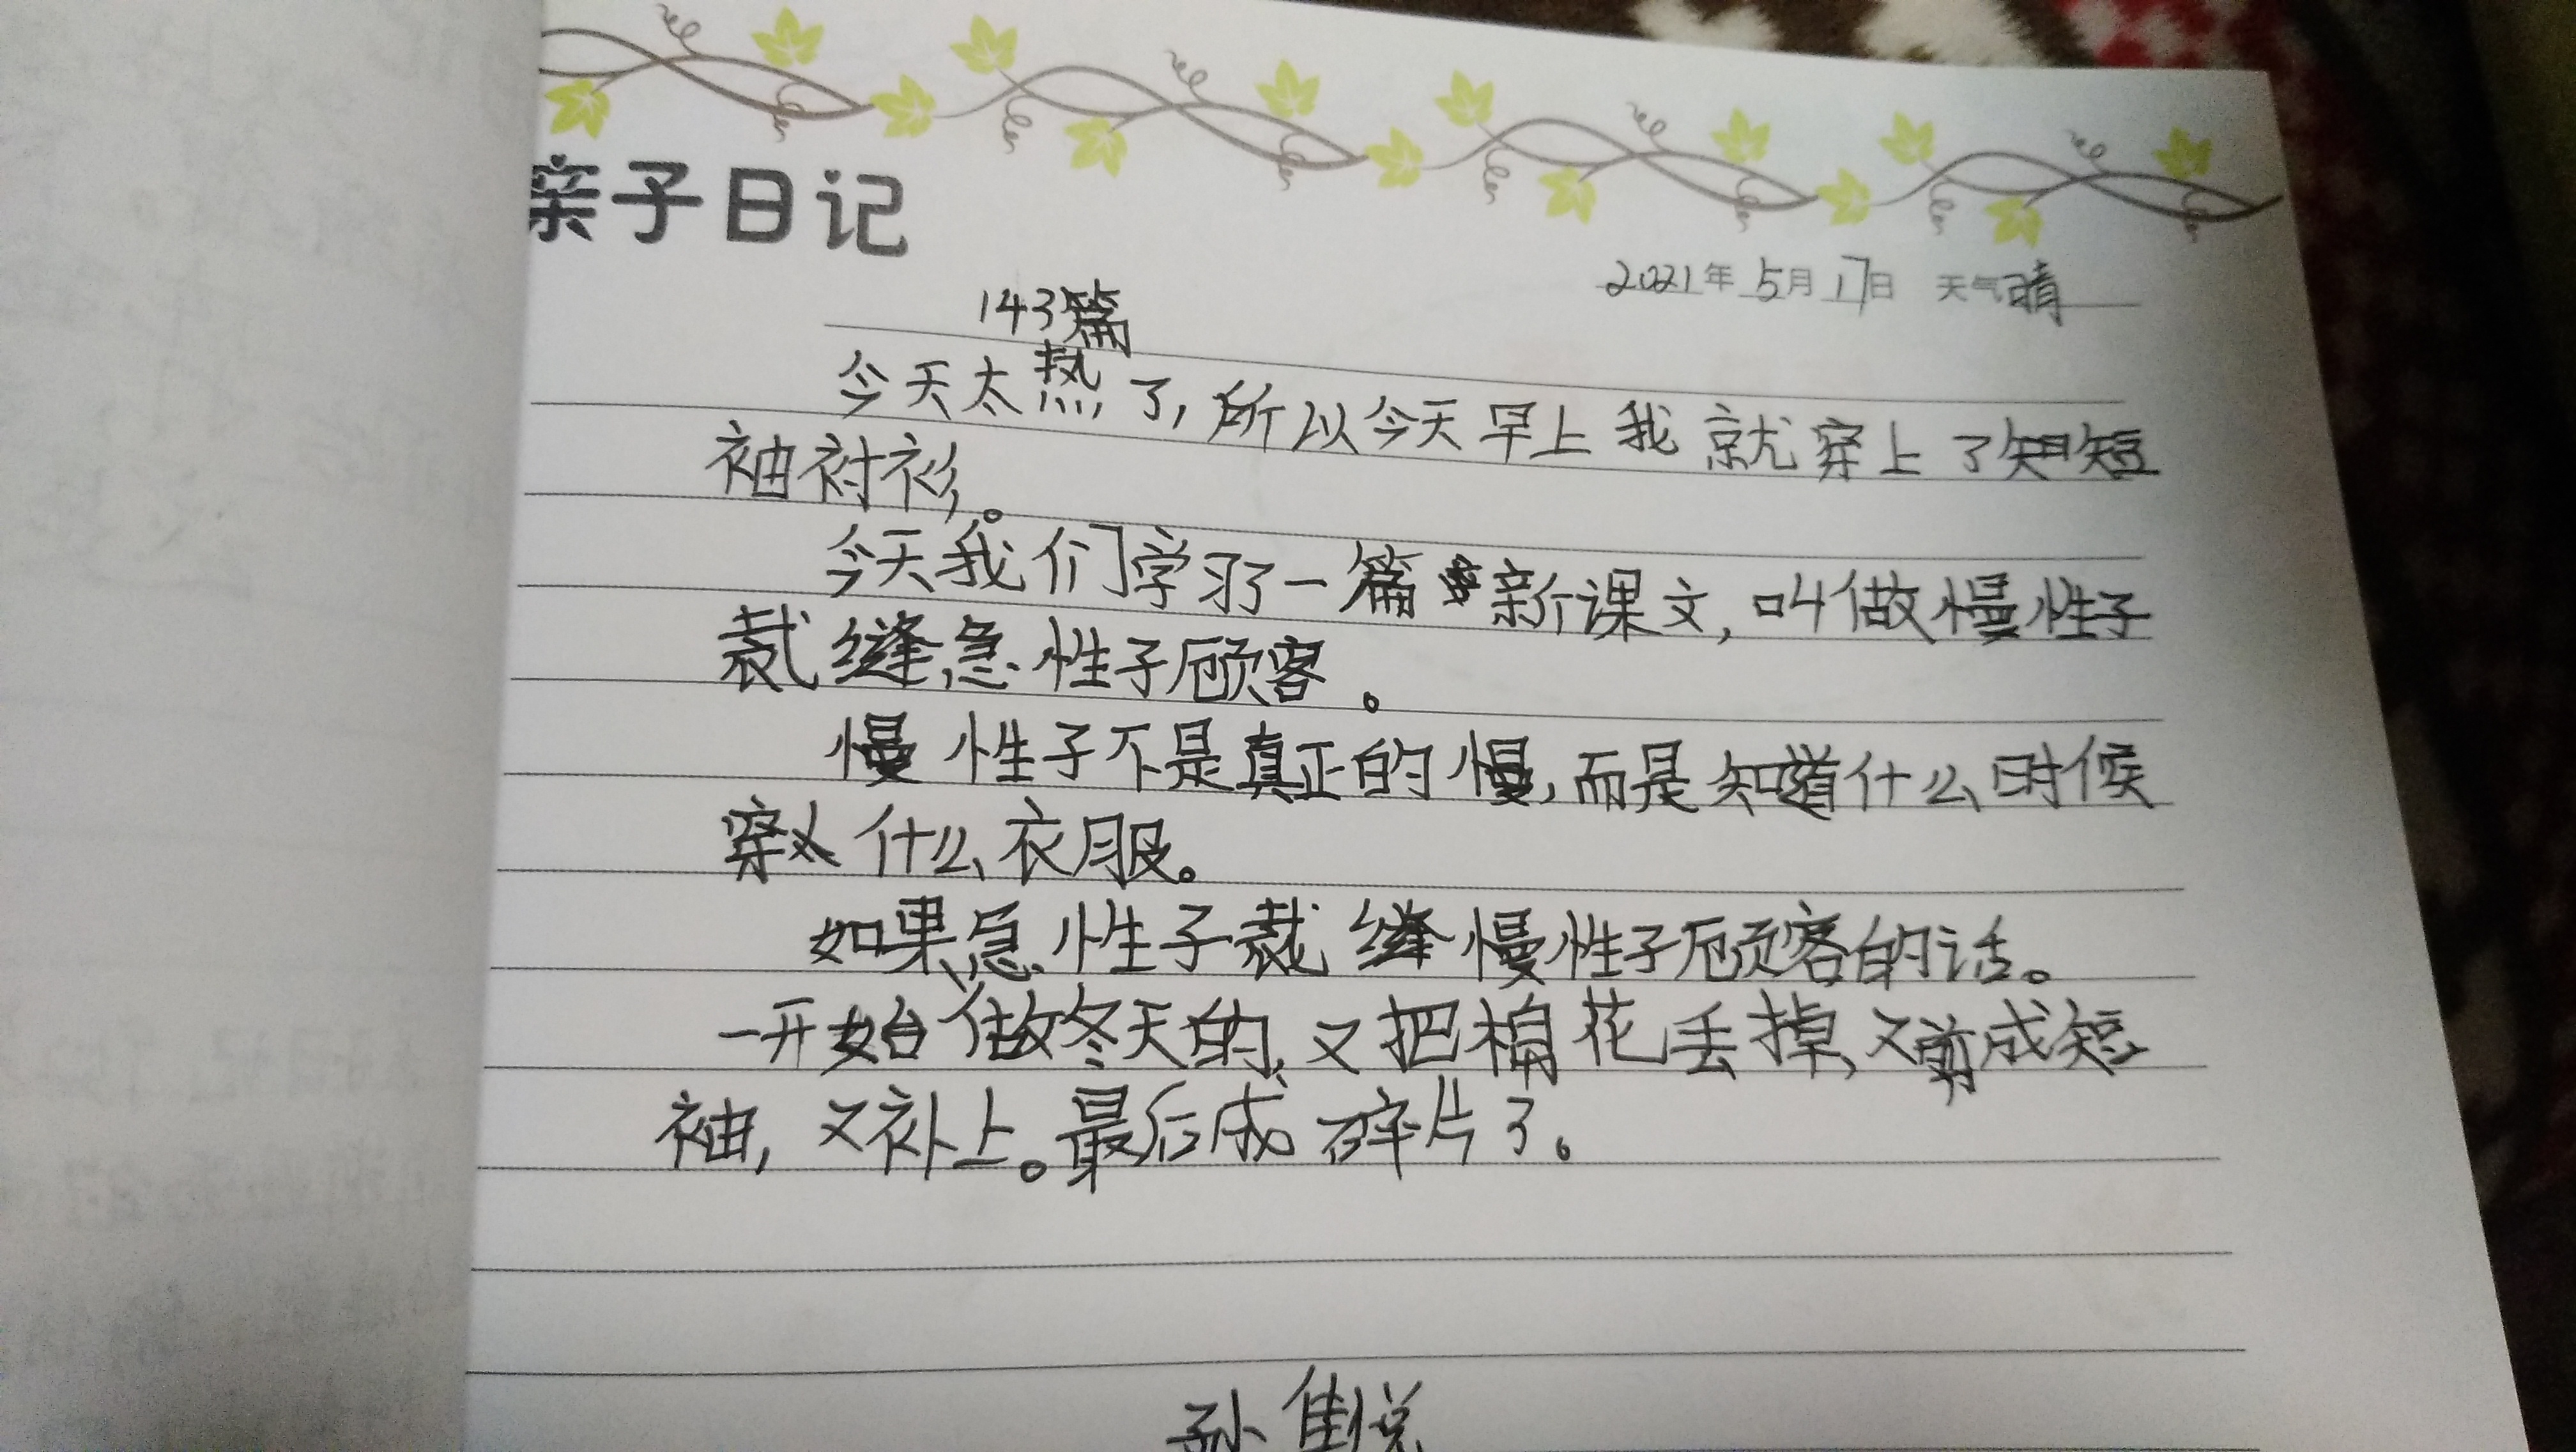 亲子日记
2021年5月17日 天气晴
143篇
今天太热了,所以今天早上我就穿上了短
袖衬衫。
今天我们学习了一篇新课文,叫做慢性子
裁缝急性子顾客。
慢性子不是真正的慢,而是知道什么时候
穿什么衣服。
如果急性子裁缝慢性子顾客的话。
一开始做冬天的,又把棉花丢掉,又剪成短
袖,又补上。最后成碎片了。
孙佳悦